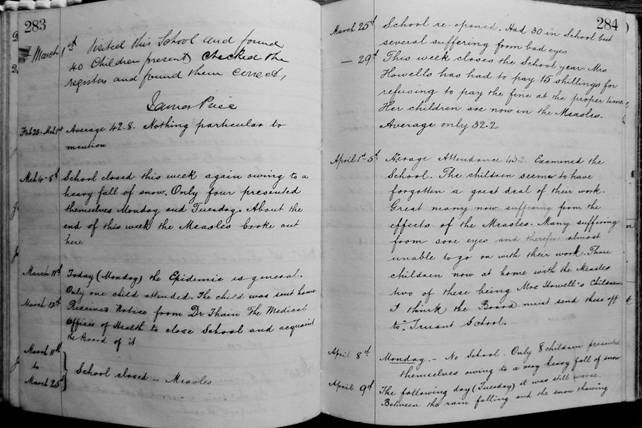 283
March 1st Visited this School and found
40 Children present, Checked the
registers and found them correct,
James Price
Feb 26 - Mch 1st Average 42.8. Nothing particular to
mention
Mch 4-8th School closed this week again owing to a
heavy fall of snow. Only four presented
themselves Monday and Tuesday. About the
end of this week the Measles broke out
here
March 11th Today (Monday) the Epidemic is general.
Only one child attended. The child was sent home
March 13th Received Notice from Dr Thain The Medical
Officer of Health to close School and acquaint
the Board of it
March 11th
to
March 25th
School closed - Measles
284
March 25th School re-opened. Had 30 in School but
several suffering from bad eyes
- 29th This week closes the School year. Mrs
Howells has had to pay 15 shillings for
refusing to pay the fine at the proper time
Her children are now in the Measles.
Average only 32.2
April 1st-5th Average Attendance Examined the
School. The children seem to have
forgotten a great deal of their work.
Great many now suffering from the
effects of the Measles. Many suffering
from sore eyes and therefore almost
unable to go on with their work. Three
children now at home with the Measles
two of these being Mrs Howell's Children
I think the Board must send these off
to Truant School.
April 8th Monday - No School. Only 8 children presented
themselves owing to a very heavy fall of snow
April 9th The following day (Tuesday) it was still worse.
Between the rain falling and the snow thawing